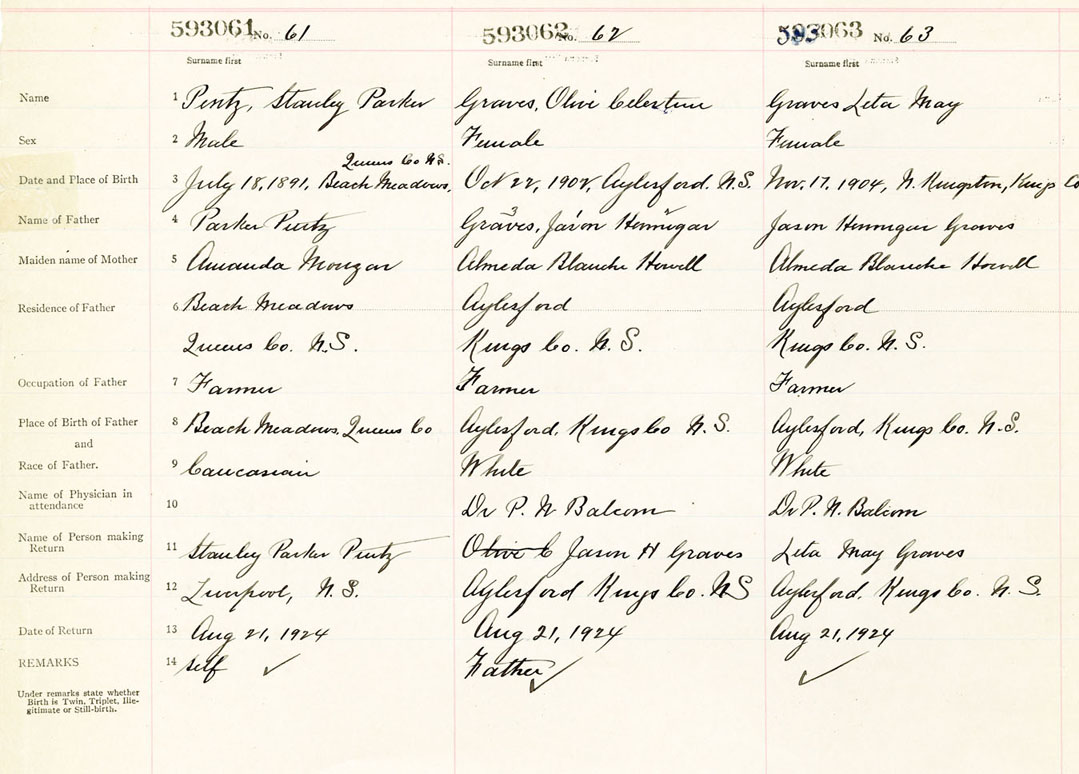 593061 No. 61
593062 No. 62
593063 No. 63
Surname first
Surname first
Surname first
Name 1 Pentz, Stanley Parker Graves, Olive Celestine Graves Leta May
Sex 2 Male Female Female
Queens Co N.S.
Date and Place of Birth 3 July 18, 1891, Beach Meadows, Oct 22, 1902, Aylesford. N.S. Nov. 17, 1904, N. Kingston, Kings Co
Name of Father 4 Parker Pentz Graves, Jason Hennigar Jason Hennigar Graves
Maiden name of Mother 5 Amanda Almeda Blanche Howell Almeda Blanche Howell
Residence of Father 6 Beach Meadows Aylesford Aylesford
Queens Co. N.S. Kings Co. N.S. Kings Co. N.S.
Occupation of Father 7 Farmer Farmer Farmer
Place of Birth of Father 8 Beach Meadows, Queens Co Aylesford, Kings Co N.S. Aylesford, Kings Co. N.S.
and
Race of Father. 9 Caucasian White White
Name of Physician in
attendance 10 Dr P. N Balcom Dr P. N. Balcom
Name of Person making
Return 11 Stanley Parker Pentz Olive C Jason H Graves Leta May Graves
Address of Person making
Return 12 Liverpool, N.S. Aylesford Kings Co. NS Aylesford, Kings Co. N.S.
Date of Return 13 Aug 21, 1924 Aug 21, 1924 Aug 21, 1924
REMARKS 14 self ✓ Father ✓ ✓
Under remarks state whether
Birth is Twin, Triplet, Ille-
gitimate or Still-birth.